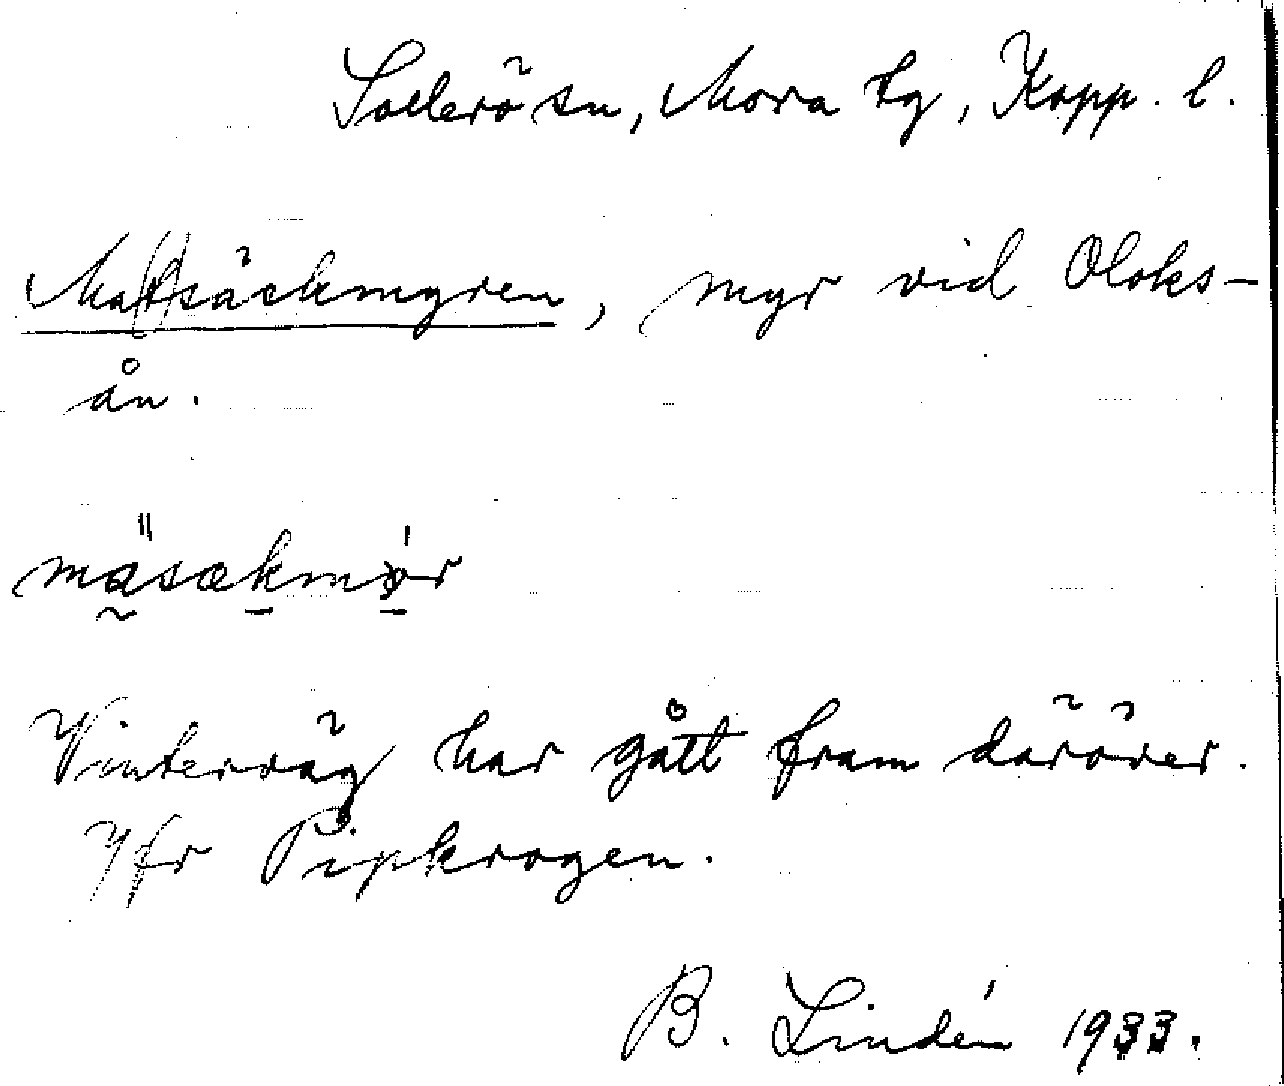 Sollerö sn, Mora tg, Kopp. l.
Ma(t)säckmyren, myr vid Oloks-
ån.
mäsækmýr
Vinterväg har gått fram däröver.
Jfr Pipkrogen.
B. Lindén 1933.